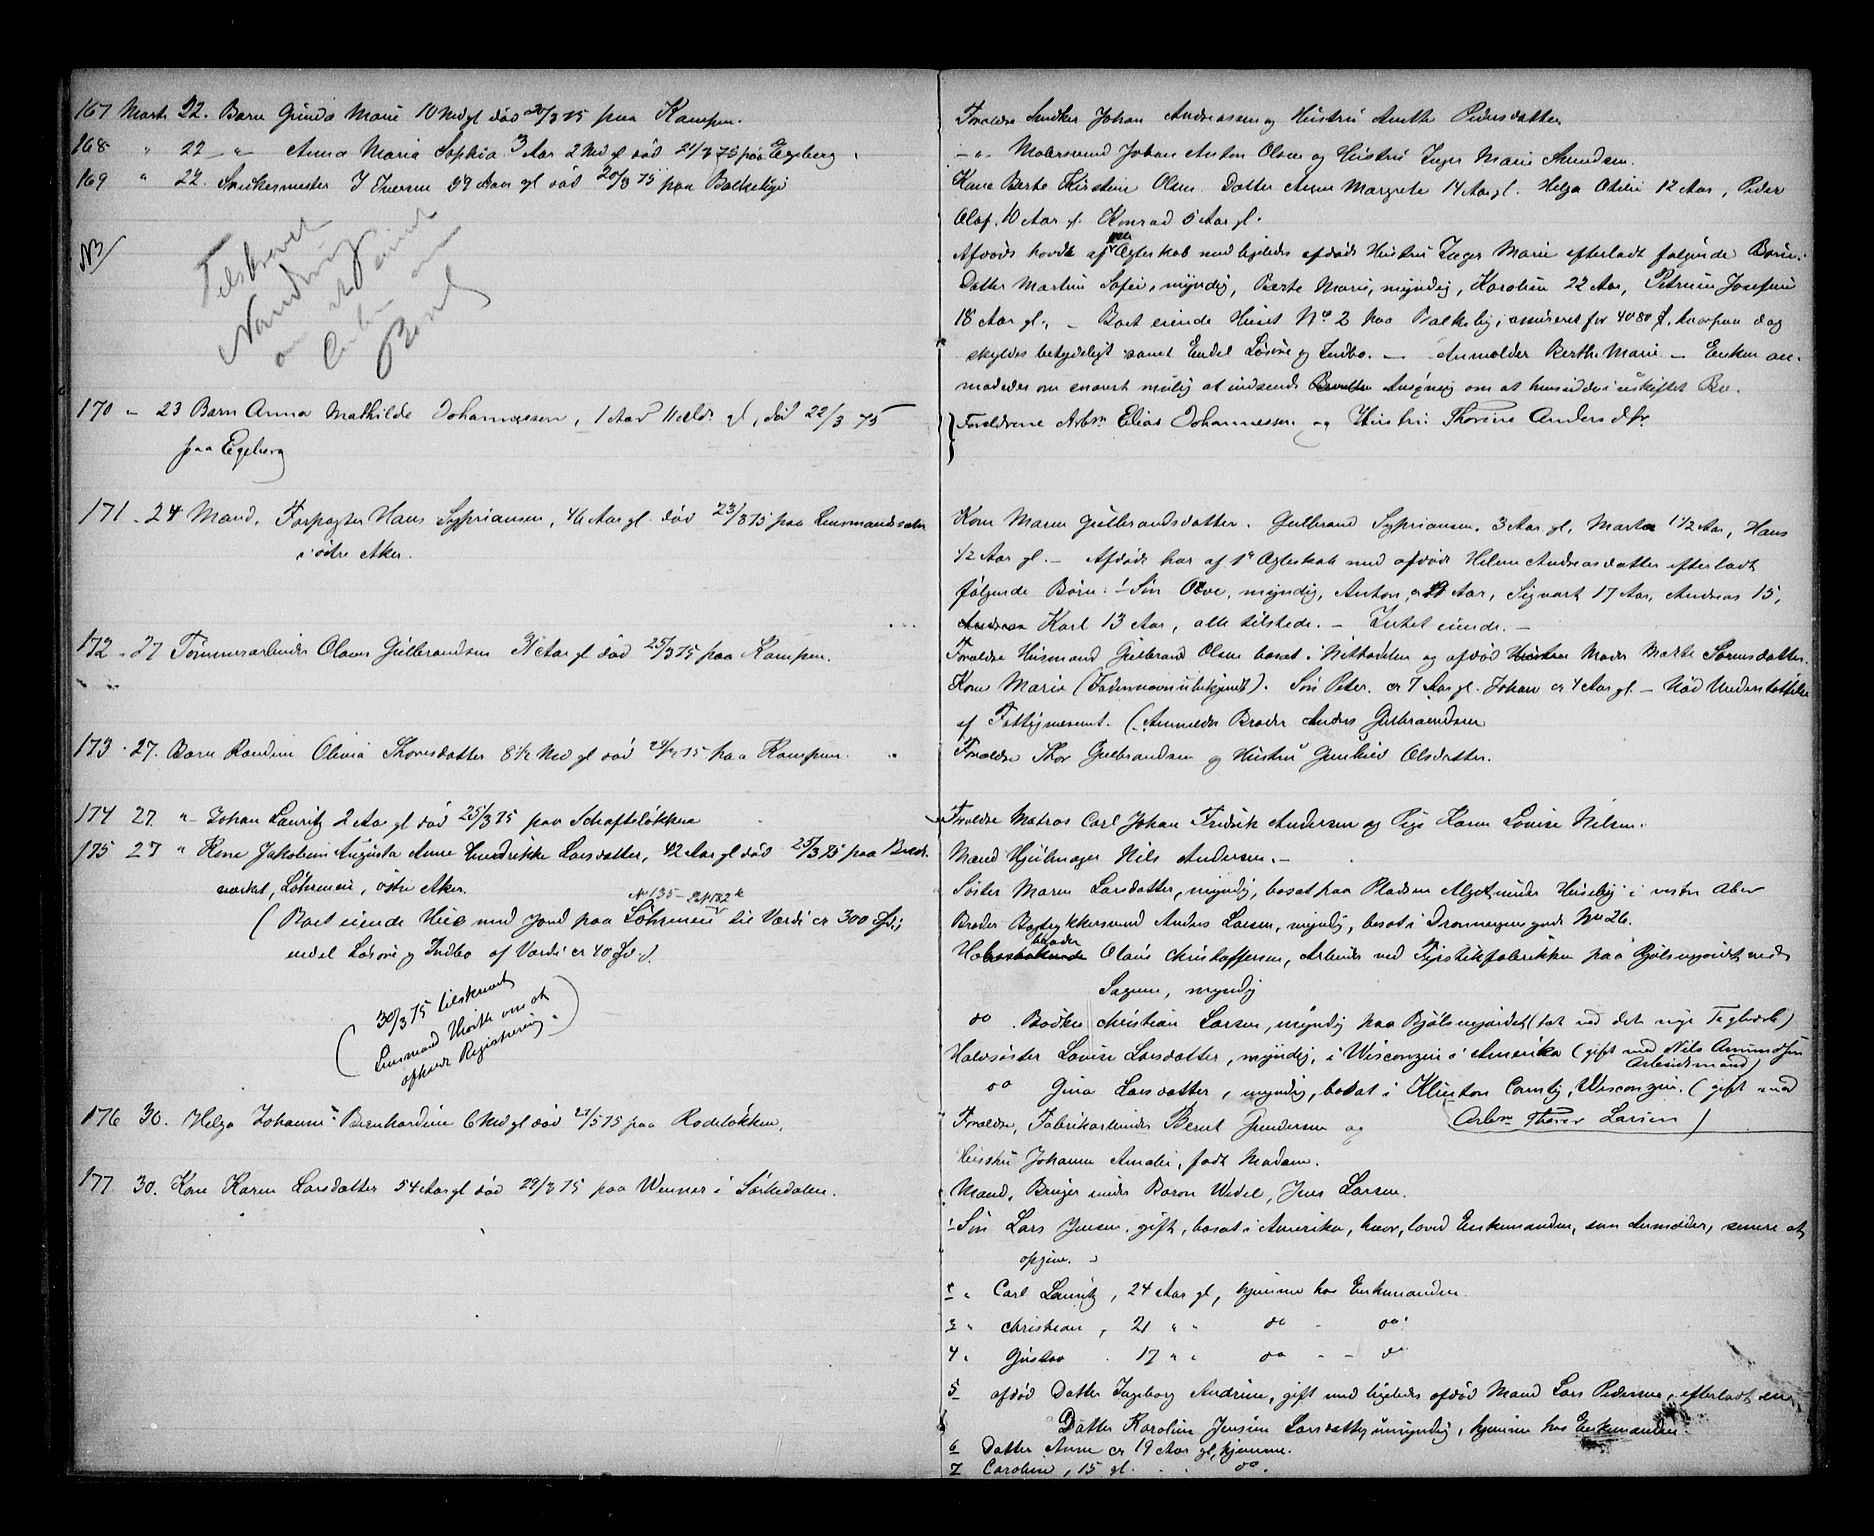 167 Marts 22. Barn Gunda Marie 10 Md gl død 20/3 75 paa Kampen.
Forældre Snedker Johan Andreassen og Hustru Anethe Pedersdatter
168 " 22 — " — Anna Maria Sophia 3 Aar 2 Md gl død 21/3 75 paa Egeberg.
— " — Malersvend Johan Anton Olsen og Hustru Inger Marie Amundsen.
169 " 22. Snedkermester J Iversen 59 Aar gl død 20/3 75 paa Balkeby
Kone Berte Kirstine Olsen. Datter Anna Margrete 14 Aar gl. Helga Otilie 12 Aar, Peder
Olaf, 10 Aar gl. Konrad 5 Aar gl.
NB/
Tilskrevet
om
Afdøde havde af Ægteskab med ligeledes afdøde Hustru Inger Marie efterladt følgende Børn:
Datter Martine Sofie, myndig, Berte Marie, myndig, Karoline 22 Aar, Petrine Josefine
18 Aar gl., — Boet eiende Huset No 2 paa Balkeby, assureret for 4080 , hvorpaa dog
skyldes betydeligt samt Endel Løsøre og Indbo. — Anmelder Berthe Marie — Enken an-
modedes om snarest mulig at indsende Ansøgning om at hensidde i uskiftet Bo.
170 — 23 Barn Anna Mathilde Johannessen, 1 Aar 11 Mdr. gl, død 22/3 75
paa Egeberg
Forældrene Arbm Elias Johannessen og Hustru Thorine Andersdtr.
171 - 24 Mand, Forpagter Hans Sypriansen, 46 Aar gl. død 23/3 75 paa Lensmandssæter
i østre Aker.
Kone Maren Gulbrandsdatter. Gulbrand Sypriansen, 3 Aar gl, Marta 1 1/2 Aar, Hans
1/2 Aar gl. — Afdøde har af 1e Ægteskab med afdøde Helene Andreasdatter efterladt
følgende Børn: — Søn Ove, myndig, Anton, 19 Aar, Sigvart 17 Aar, Andreas 15,
Karl 13 Aar, alle tilstede. — Intet eiende. —
172 - 27 Tømmerarbeider Olaus Gulbrandsen 31 Aar gl død 25/3 75 paa Kampen.
Forældre Husmand Gulbrand Olsen bosat i Nittedalen og afdød Moder Marte Sørensdatter.
Kone Marie (Fadernavn ubekjendt). Søn Peter er 7 Aar gl. Johan er 4 Aar gl. — Nød Understøttelse
af Fattigvæsenet. (Anmelder Broder Anders Gulbrandsen
173 - 27. Barn Randine Olivia Thorsdatter 8 1/2 Md gl død 24/3 75 paa Kampen.
Forældre Thor Gulbrandsen og Hustru Gunhild Olsdatter.
174 27. " Johan Lauritz 2 Aar gl død 25/3 75 paa Schafteløkken
Forældre Matros Carl Johan Fredrik Andersen og Pige Karen Lovise Nilsen.
175 27 " Kone Jakobine Augusta Anne Hendrekke Larsdatter, 42 Aar gl død 25/3 75 paa Brænd.
værket, Løhreneie, østre Aker.
Mand Hjulmager Nils Andersen. —
Søster Maren Larsdatter, myndig, bosat paa Pladsen Alget under Huseby i vestre Aker
No 135 - No 182 b
( Boet eiende Hus med Jord paa Løhreneie til Værdi ca 300 Spd.;
endel Løsøre og Indbo af Værdi ca 40 Spd.
Broder Bogtrykkersvend Anders Larsen, myndig, bosat i Dronningens gade No 26.
Halvbroder Olaus Christoffersen, Arbeider ved Fyrstikfabrikken paa Bjølsengjordet ved
Sagene, myndig
( 30/3 75 tilskrevet
Lensmand Hioth om at
ophæve Registrering. )
do. Bødker Christian Larsen, myndig paa Bjølsengjordet (tæt ved det nye Teglværk)
Halvsøster Lovise Larsdatter, myndig, i Wisconzin i Amerika (gift med Nils Amundsen
Arbeidsmand)
do Gina Larsdatter, myndig, bosat i Klinton County, Wisconzin. (gift med
Arbm Thorer Larsen)
176 30. Helga Johanne Bernhardine 6 Md gl død 27/3 75 paa Rodeløkken.
Forældre, Fabrikarbeider Bernt Gundersen og
Hustru Johanne Amalie, født Madsen.
177 30. Kone Karen Larsdatter 54 Aar gl død 29/3 75 paa Wenner i Sørkedalen.
Mand, Bruger under Baron Wedel, Jens Larsen.
1 Søn Lars Jensen, gift, bosat i Amerika, hvor, loved Enkemanden, som Anmelder, senere at
opgive.
2 " Carl Lauritz, 24 Aar gl, hjemme hos Enkemanden.
3 " Christian, 21 " " do - do.
4 " Gustav 17 " " do - - do
5 afdød Datter Ingeborg Andrine, gift med ligeledes afdød Mand Lars Pedersen, efterladt en
Datter Karoline Jensine Larsdatter, umyndig, hjemme hos Enkemanden.
6 Datter Anne er 19 Aar gl, hjemme.
7 Caroline, 15 gl. do.